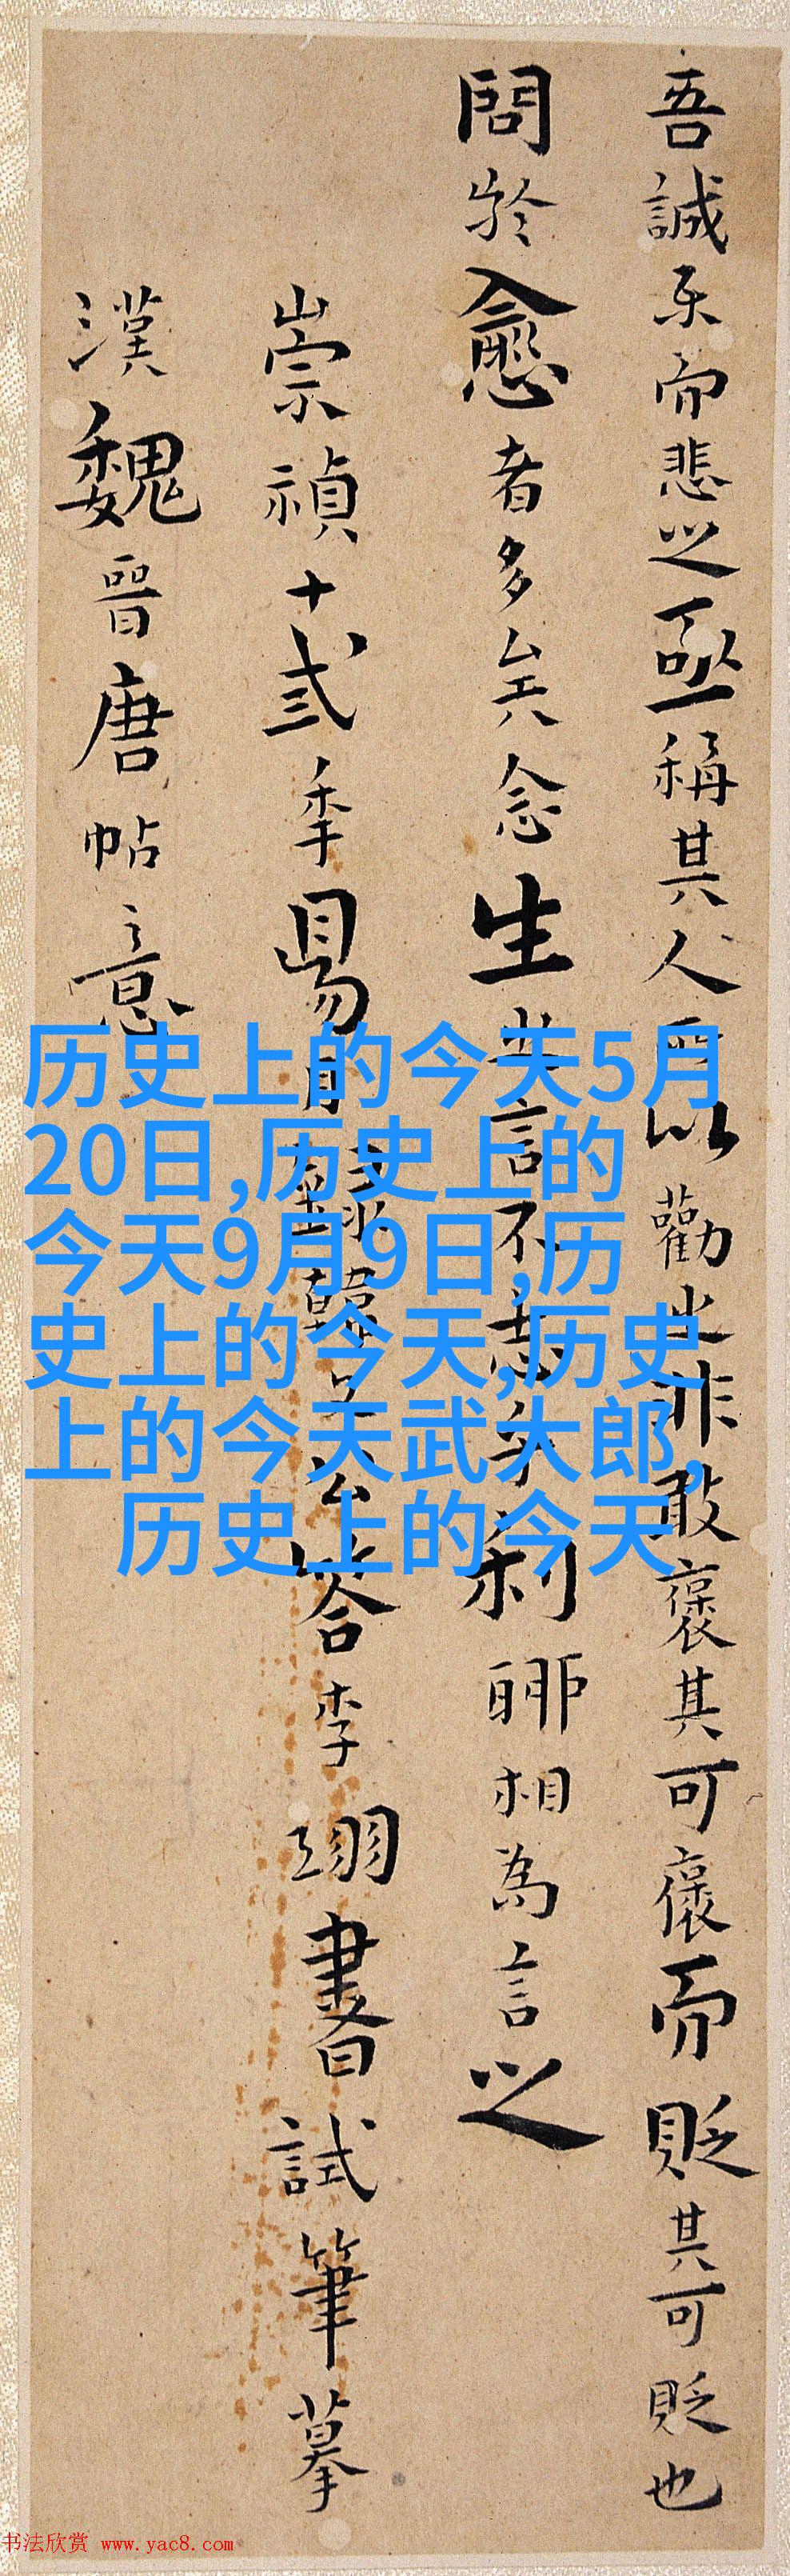 吾誠樂而悲之亟稱其人所以勸之非敢褒其可褒而貶其可貶也
問於愈者多矣念生之言不志乎利聊相為言之
崇禎十弍季易月錄韓文公答李翊書試筆摹
漢魏晉唐帖意
历史上的今天5月
20日,历史上的
今天9月9日,历
史上的今天,历史
上的今天武大郎,
历史上的今天
书法欣赏 www.yac8.com